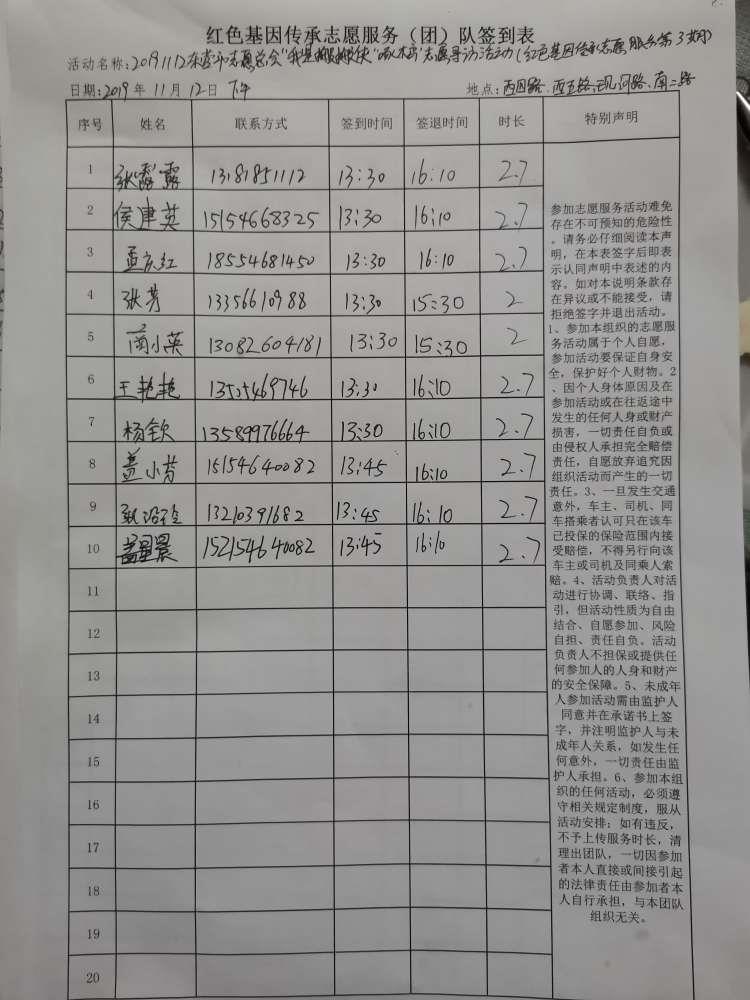 红色基因传承志愿服务（团）队签到表
活动名称：20191112东营市志愿总会"我是 侠"啄木鸟"志愿寻访活动(红色基因传承志愿服务第3期)
日期：2019年11月12日下午 地点：西四路、西五路、现河路、南二路
序号 姓名 联系方式 签到时间 签退时间 时长 特别声明
1 张露露 13181851112 13:30 16:10 2.7
2 侯建英 15154668325 13:30 16:10 2.7
3 孟庆红 18554681450 13:30 16:10 2.7
4 张芳 13356610988 13:30 15:30 2
5 蔺小英 13082604181 13:30 15:30 2
6 王艳艳 13525469746 13:30 16:10 2.7
7 杨钦 13589976664 13:30 16:10 2.7
8 盖小芬 15154640082 13:45 16:10 2.7
9 13210391682 13:45 16:10 2.7
10 盖星晨 152154640082 13:45 16:10 2.7
11
12
13
14
15
16
17
18
19
20
参加志愿服务活动难免
存在不可预知的危险性
。请务必仔细阅读本声
明，在本表签字后即表
示认同声明中表述的内
容。如对本说明条款存
在异议或不能接受，请
拒绝签字并退出活动。
1、参加本组织的志愿服
务活动属于个人自愿，
参加活动要保证自身安
全，保护好个人财物。2
、因个人身体原因及在
参加活动或在往返途中
发生的任何人身或财产
损害，一切责任自负或
由侵权人承担完全赔偿
责任，自愿放弃追究因
组织活动而产生的一切
责任。3、一旦发生交通
意外，车主、司机、同
车搭乘者认可只在该车
已投保的保险范围内接
受赔偿，不得另行向该
车主或司机及同乘人索
赔。4、活动负责人对活
动进行协调、联络、指
引，但活动性质为自由
结合、自愿参加、风险
自担、责任自负。活动
负责人不担保或提供任
何参加人的人身和财产
的安全保障。5、未成年
人参加活动需由监护人
同意并在承诺书上签
字，并注明监护人与未
成年人关系，如发生任
何意外，一切责任由监
护人承担。6、参加本组
织的任何活动，必须遵
守相关规定制度，服从
活动安排；如有违反，
不予上传服务时长，清
理出团队，一切因参加
者本人直接或间接引起
的法律责任由参加者本
人自行承担，与本团队
组织无关。